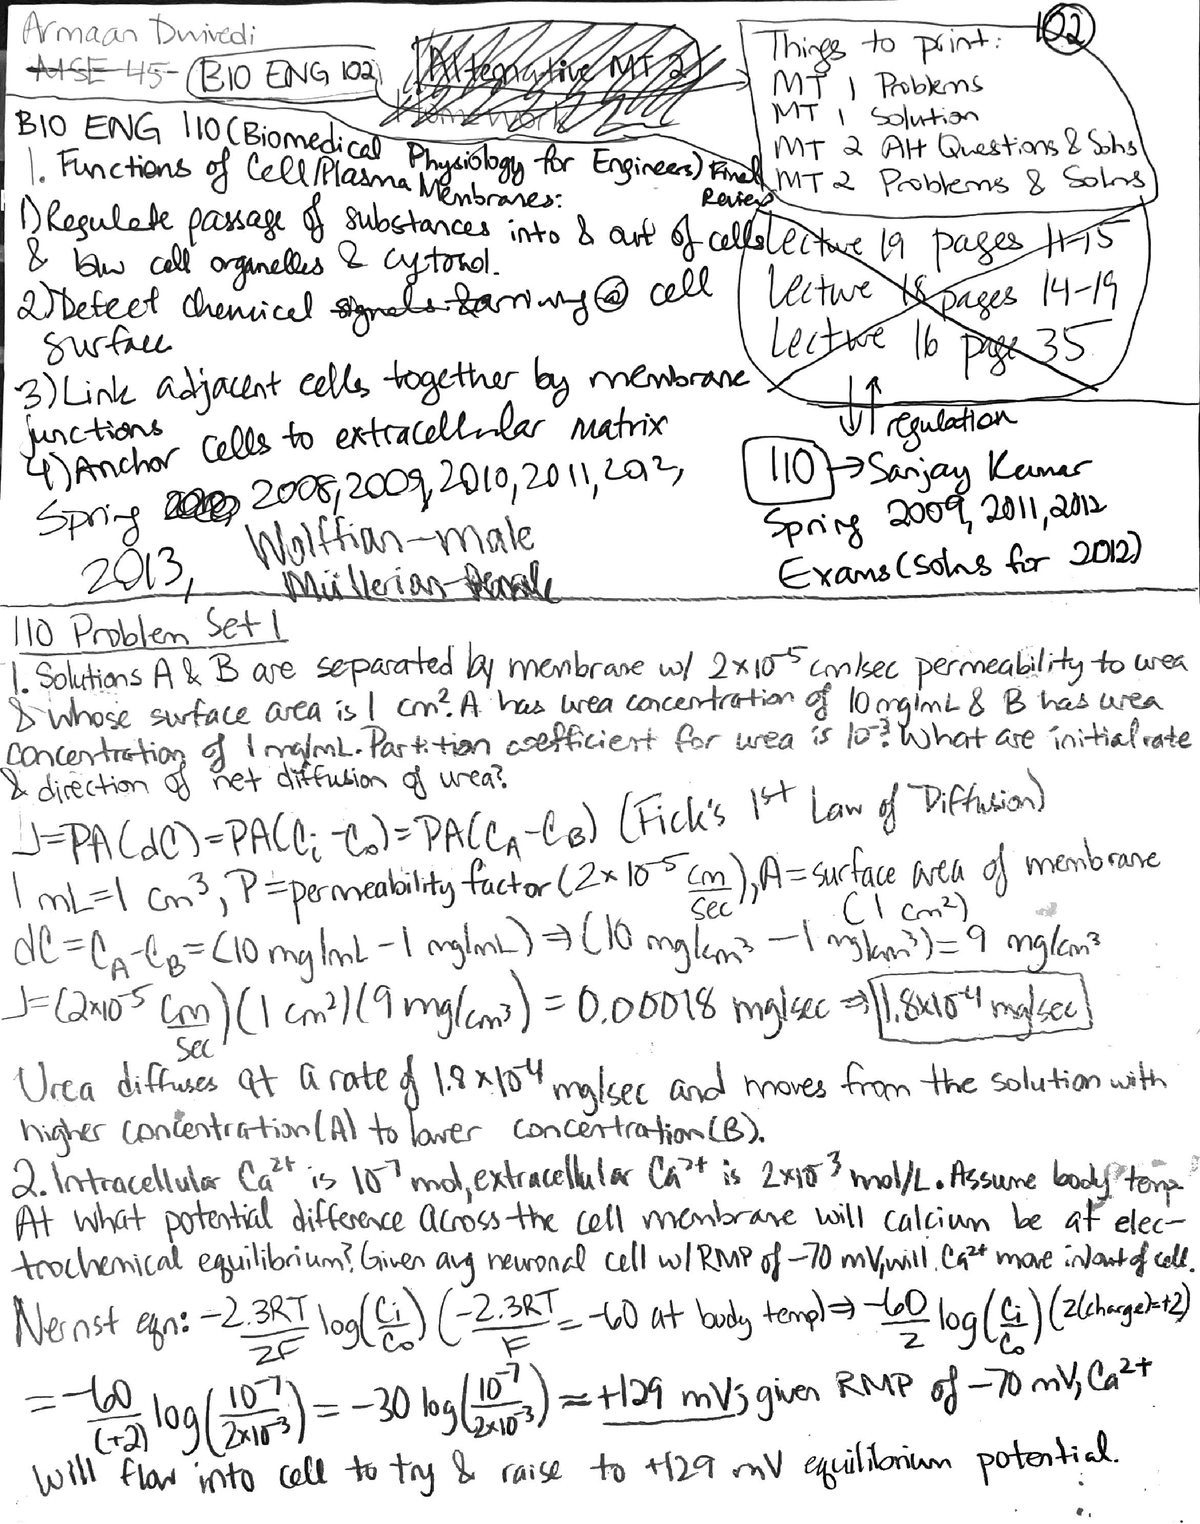 Armaan Dwivedi
MSE 45 - BIO ENG 102
Alternative MT 2
Homework
102
Things to print:
MT 1 Problems
MT 1 Solution
MT 2 Alt Questions & Solns
MT 2 Problems & Solns
Lecture 19 pages 11-15
Lecture 18 pages 14-19
Lecture 16 page 35
↓↑ regulation
110 → Sanjay Kumar
Spring 2009, 2011, 2012
Exams (Solns for 2012)
BIO ENG 110 (Biomedical Physiology for Engineers) Final Review
1. Functions of Cell/Plasma Membranes:
1) Regulate passage of substances into & out of cells
& btw cell organelles & cytosol.
2) Detect chemical signals arriving @ cell
surface
3) Link adjacent cells together by membrane
junctions
4) Anchor cells to extracellular matrix
Spring 2008, 2009, 2010, 2011, 2012,
2013,
Wolffian - male
Müllerian - female
110 Problem Set 1
1. Solutions A & B are separated by membrane w/ 2×10⁻⁵ cm/sec permeability to urea
& whose surface area is 1 cm². A has urea concentration of 10 mg/mL & B has urea
concentration of 1 mg/mL. Partition coefficient for urea is 10⁻³. What are initial rate
& direction of net diffusion of urea?
J=PA(dC)=PA(Ci-Co)=PA(CA-CB) (Fick's 1st Law of Diffusion)
1 mL=1 cm³, P=permeability factor (2×10⁻⁵ cm/sec), A=surface area of membrane
(1 cm²)
dC=CA-CB=(10 mg/mL-1 mg/mL)⇒(10 mg/cm³-1 mg/cm³)=9 mg/cm³
J=(2×10⁻⁵ cm/sec)(1 cm²)(9 mg/cm³)=0.00018 mg/sec⇒1.8×10⁻⁴ mg/sec
Urea diffuses at a rate of 1.8×10⁻⁴ mg/sec and moves from the solution with
higher concentration (A) to lower concentration (B).
2. Intracellular Ca²⁺ is 10⁻⁷ mol, extracellular Ca²⁺ is 2×10⁻³ mol/L. Assume body temp.
At what potential difference across the cell membrane will calcium be at elec-
trochemical equilibrium? Given avg neuronal cell w/ RMP of -70 mV, will Ca²⁺ move in/out of cell.
Nernst eqn: -2.3RT/ZF log(Ci/Co) (-2.3RT/F = -60 at body temp)⇒ -60/Z log(Ci/Co) (Z(charge)=+2)
= -60/(+2) log(10⁻⁷/2×10⁻³) = -30 log(10⁻⁷/2×10⁻³) ≈ +129 mV; given RMP of -70 mV, Ca²⁺
will flow into cell to try & raise to +129 mV equilibrium potential.